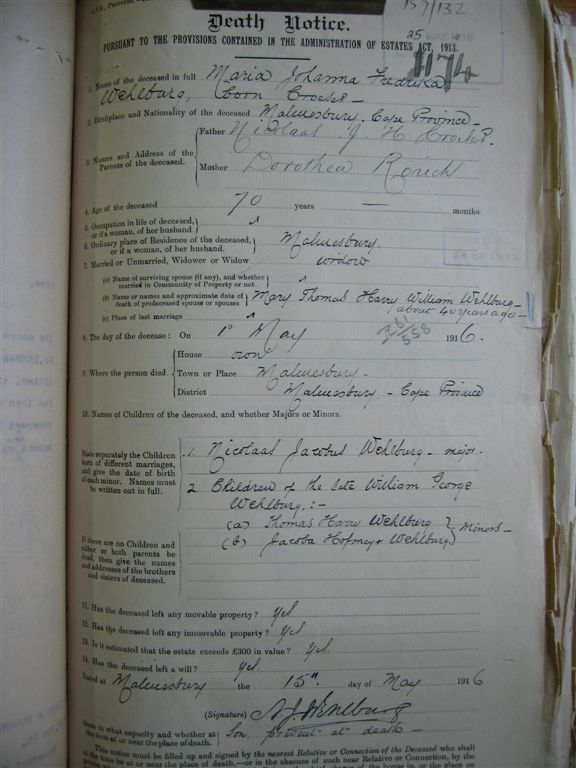 157/132
Death Notice.
25 MAY 1916
PURSUANT TO THE PROVISIONS CONTAINED IN THE ADMINISTRATION OF ESTATES ACT, 1913.
1174
1. Name of the deceased in full Maria Johanna Fredrika
Wehlburg, born Croeser
2. Birthplace and Nationality of the deceased Malmesbury. Cape Province
3. Names and Address of the Parents of the deceased.
Father Nicolaas J. H. Croeser.
Mother Dorothea
4. Age of the deceased 70 years — months
5. Occupation in life of deceased, or if a woman, of her husband
6. Ordinary place of Residence of the deceased, or if a woman, of her husband. Malmesbury.
7. Married or Unmarried, Widower or Widow widow
(a) Name of surviving spouse (if any), and whether married in Community of Property or not.
(b) Name or names and approximate date of death of predeceased spouse or spouses Thomas Harry William Wehlburg
about 40 years ago
(c) Place of last marriage
8. The day of the decease: On 1st May 1916.
9. Where the person died.
House own
Town or Place Malmesbury
District Malmesbury - Cape Province
10. Names of Children of the deceased, and whether Majors or Minors.
State separately the Children born of different marriages, and give the date of birth of each minor. Names must be written out in full.
1. Nicolaas Jacobus Wehlburg - major.
2 Children of the late William George
Wehlburg :-
(a) Thomas Harry Wehlburg } minors
(b) Jacoba Hofmeyr Wehlburg
If there are no Children and either or both parents be dead, then give the names and addresses of the brothers and sisters of deceased.
11. Has the deceased left any movable property? Yes
12. Has the deceased left any immovable property? Yes
13. Is it estimated that the estate exceeds £300 in value? Yes
14. Has the deceased left a will? Yes.
Dated at Malmesbury the 15th. day of May 1916
(Signature) N J Wehlburg
State in what capacity and whether at the time at or near the place of death. Son. present at death
This notice must be filled up and signed by the nearest Relative or Connection of the Deceased who shall
at the time be at or near the place of death,—or in the absence of such near Relative or Connection, by the